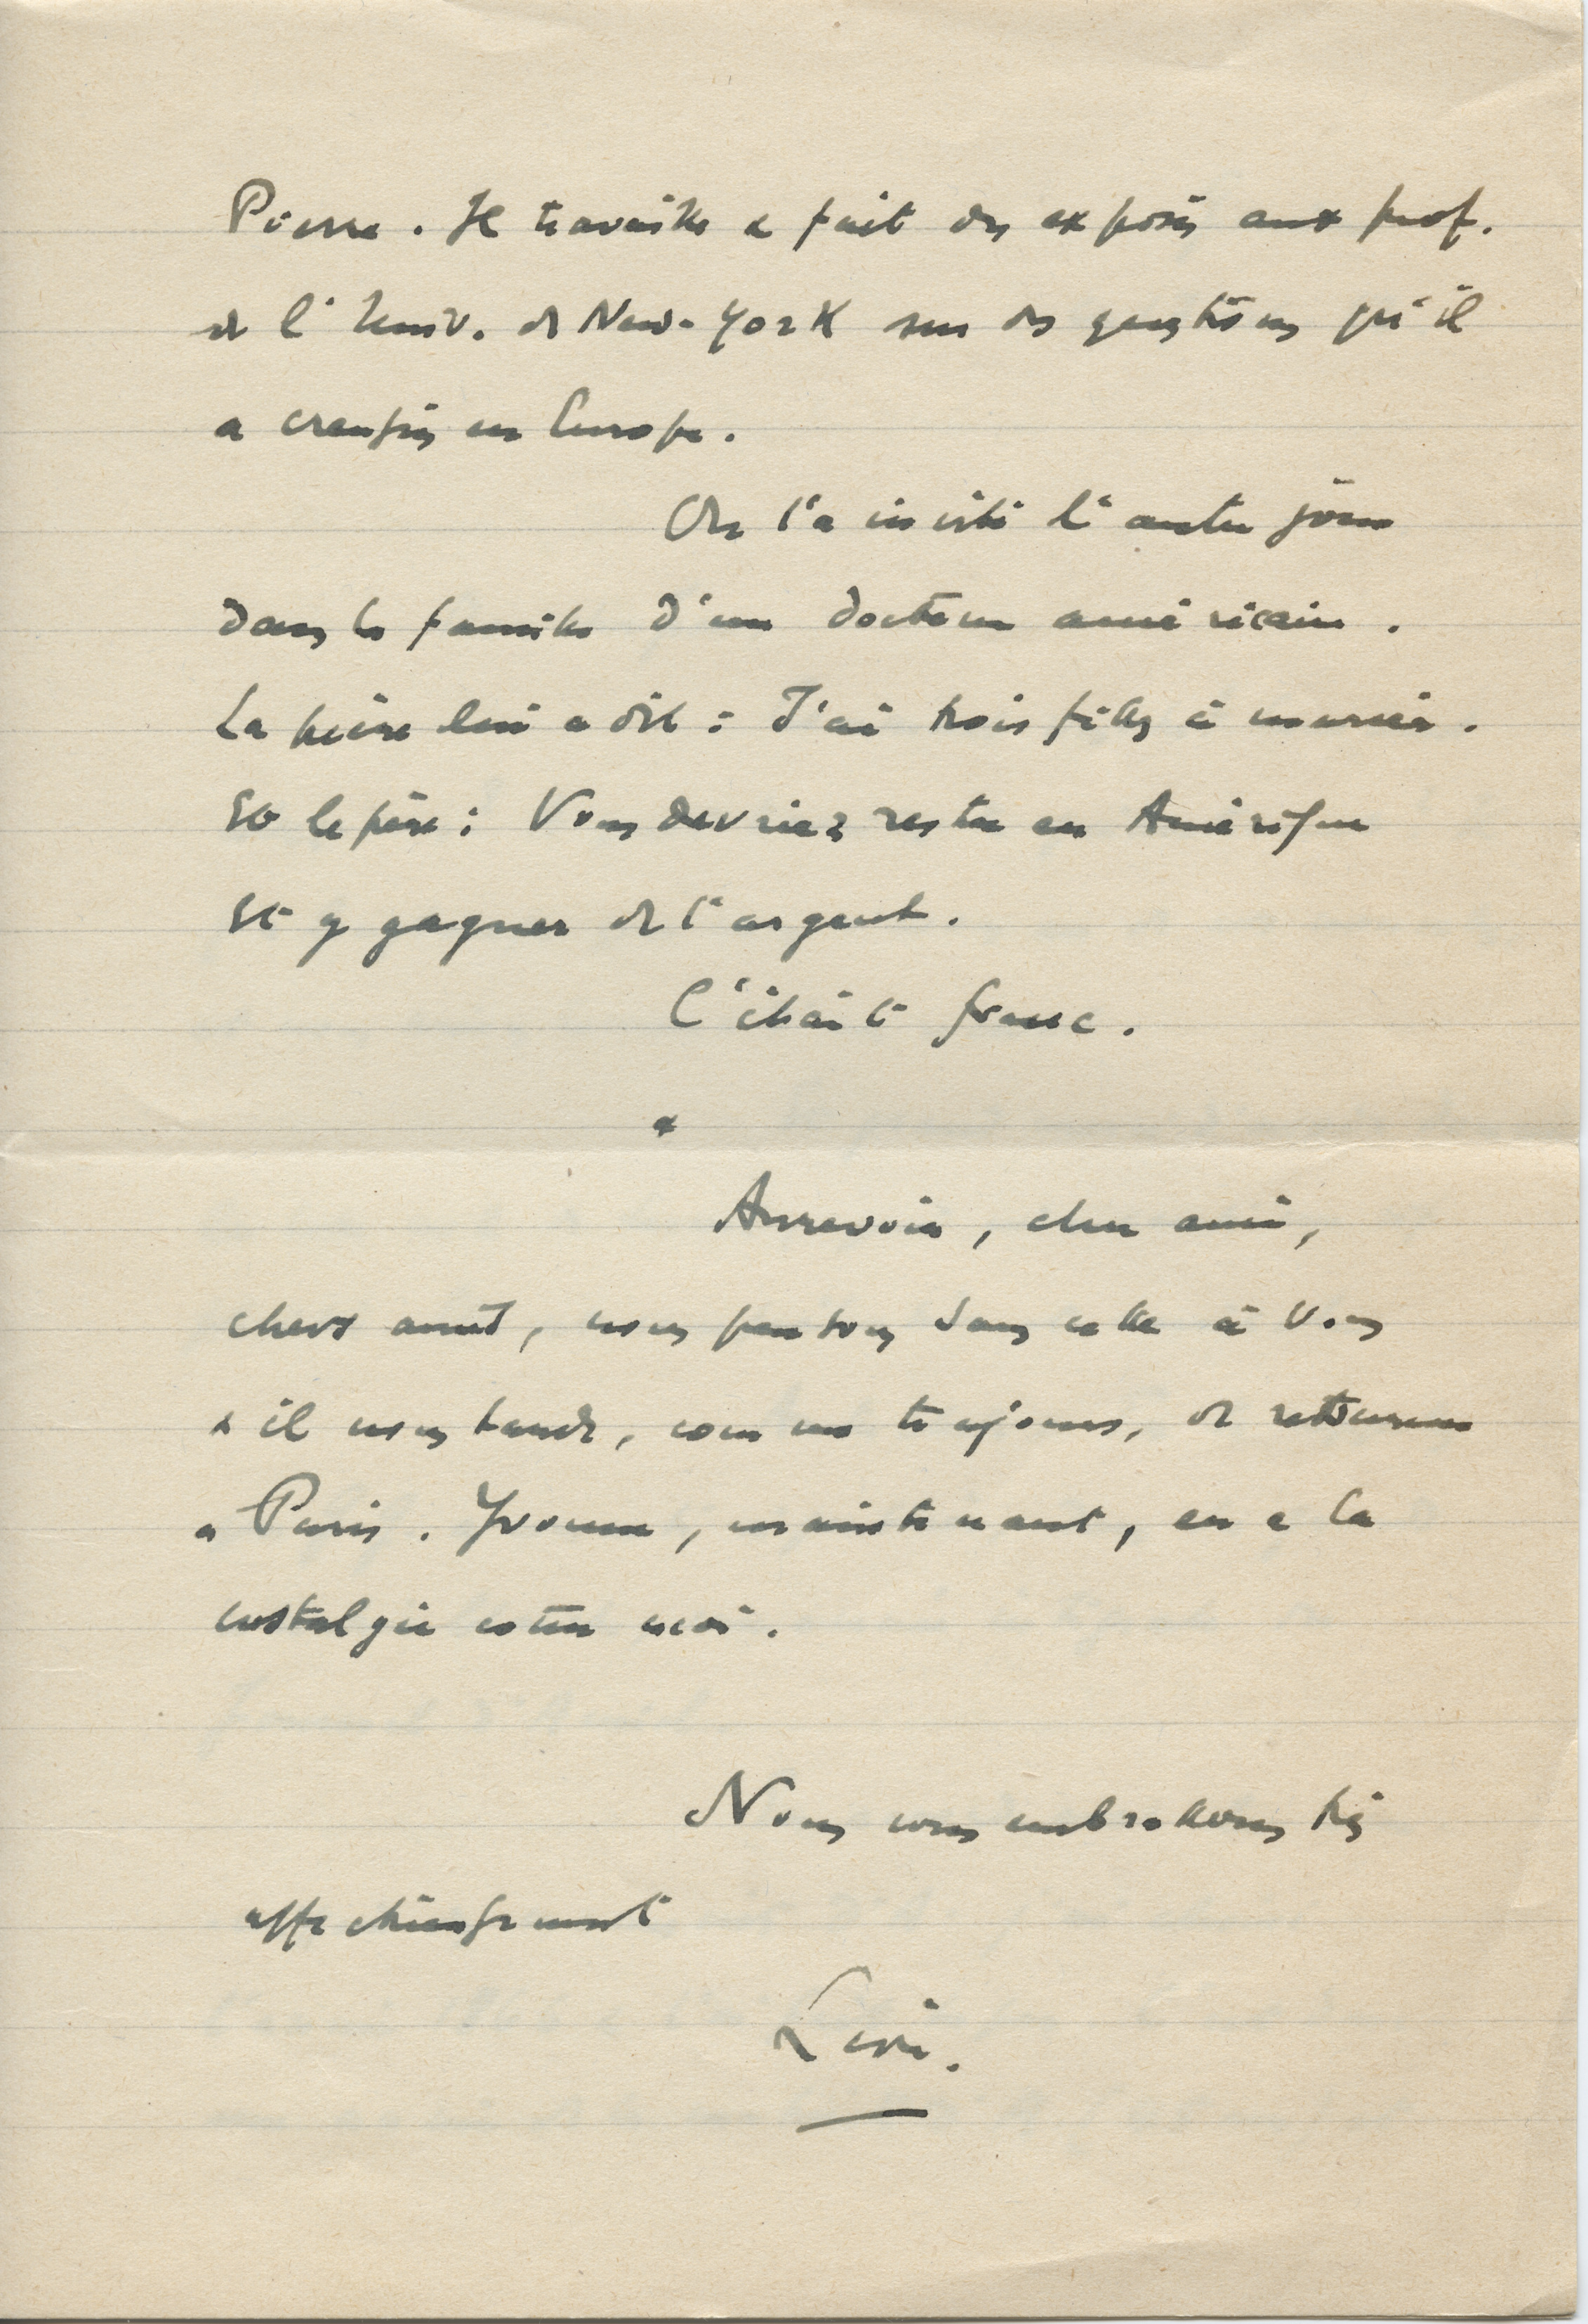 Pierre. Il travaille & fait des exposés aux prof.
de l'Univ. de New-York sur des questions qu'il
a creusées en Europe.
On l'a invité l'autre jour
dans la famille d'un docteur américain.
La mère lui a dit : J'ai trois filles à marier.
Et le père : Vous devriez rester en Amérique
et y gagner de l'argent.
C'était franc.
*
Aurevoir, cher ami,
chers amis, nous pensons sans cesse à vous
& il nous tarde, comme toujours, de retourner
à Paris. Yvonne, maintenant, en a la
nostalgie comme moi.
Nous vous embrassons très
affectueusement
Levi.